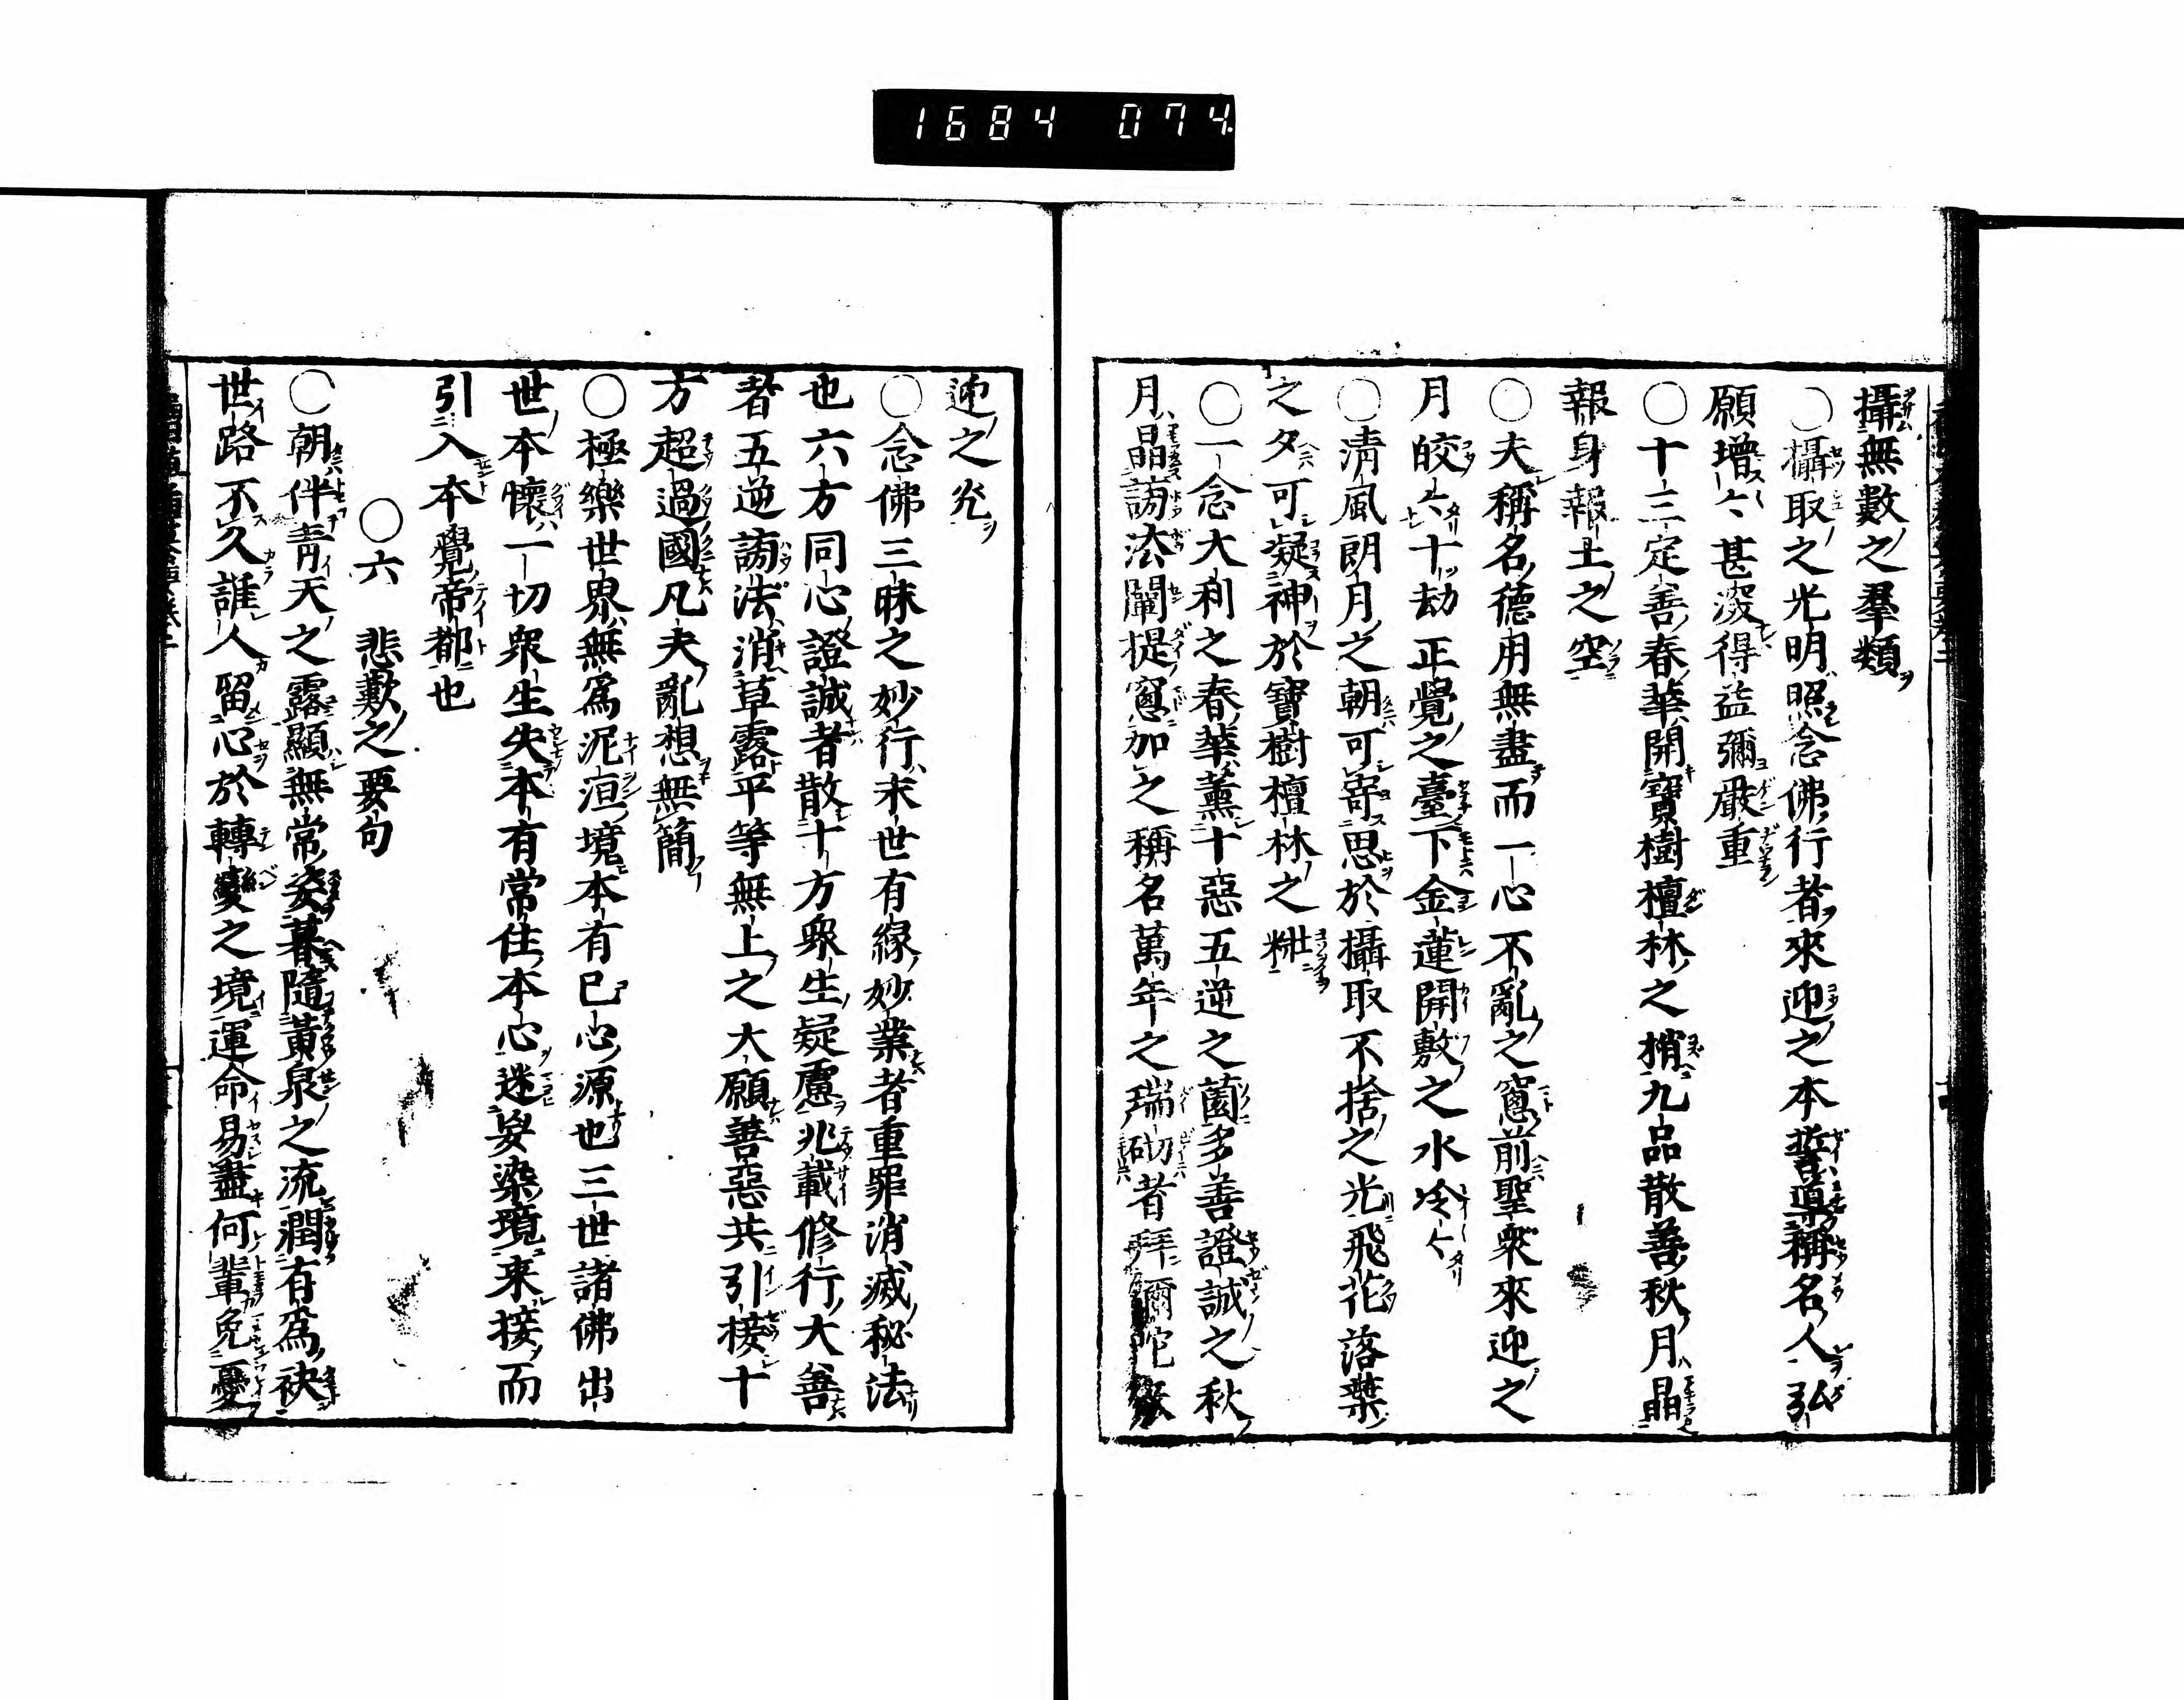 1684 074
攝無數之羣類
○攝取之光明照念佛行者來迎之本誓導稱名人弘
願增〻甚深得益彌嚴重
○十三定善春華開寶樹檀林之梢九品散善秋月晶
報身報土之空
○夫稱名德用無盡而一心不亂之窓前聖衆來迎之
月皎〻十劫正覺之臺下金蓮開敷之水冷〻
○淸風朗月之朝可寄思於攝取不捨之光飛花落葉
之夕可凝神於寶樹檀林之粧
○一念大利之春華薰十惡五逆之薗多善證誠之秋
月晶謗法闡提窓加之稱名萬年之瑞砌者拜彌陀
迎之光
○念佛三昧之妙行末世有緣妙業者重罪消滅秘法
也六方同心證誠者散十方衆生疑慮兆載修行大善
者五逆謗法消草露平等無上之大願善惡共引接十
方超過國凡夫亂想無簡
○極樂世界無爲泥洹境本有已心源也三世諸佛出
世本懷一切衆生失本有常住本心迷妄染境来接而
引入本覺帝都也
○六　悲歎之要句
○朝伴靑天之露顯無常姿暮隨黃泉之流潤有爲袂
世路不久誰人留心於轉變之境運命易盡何輩免憂